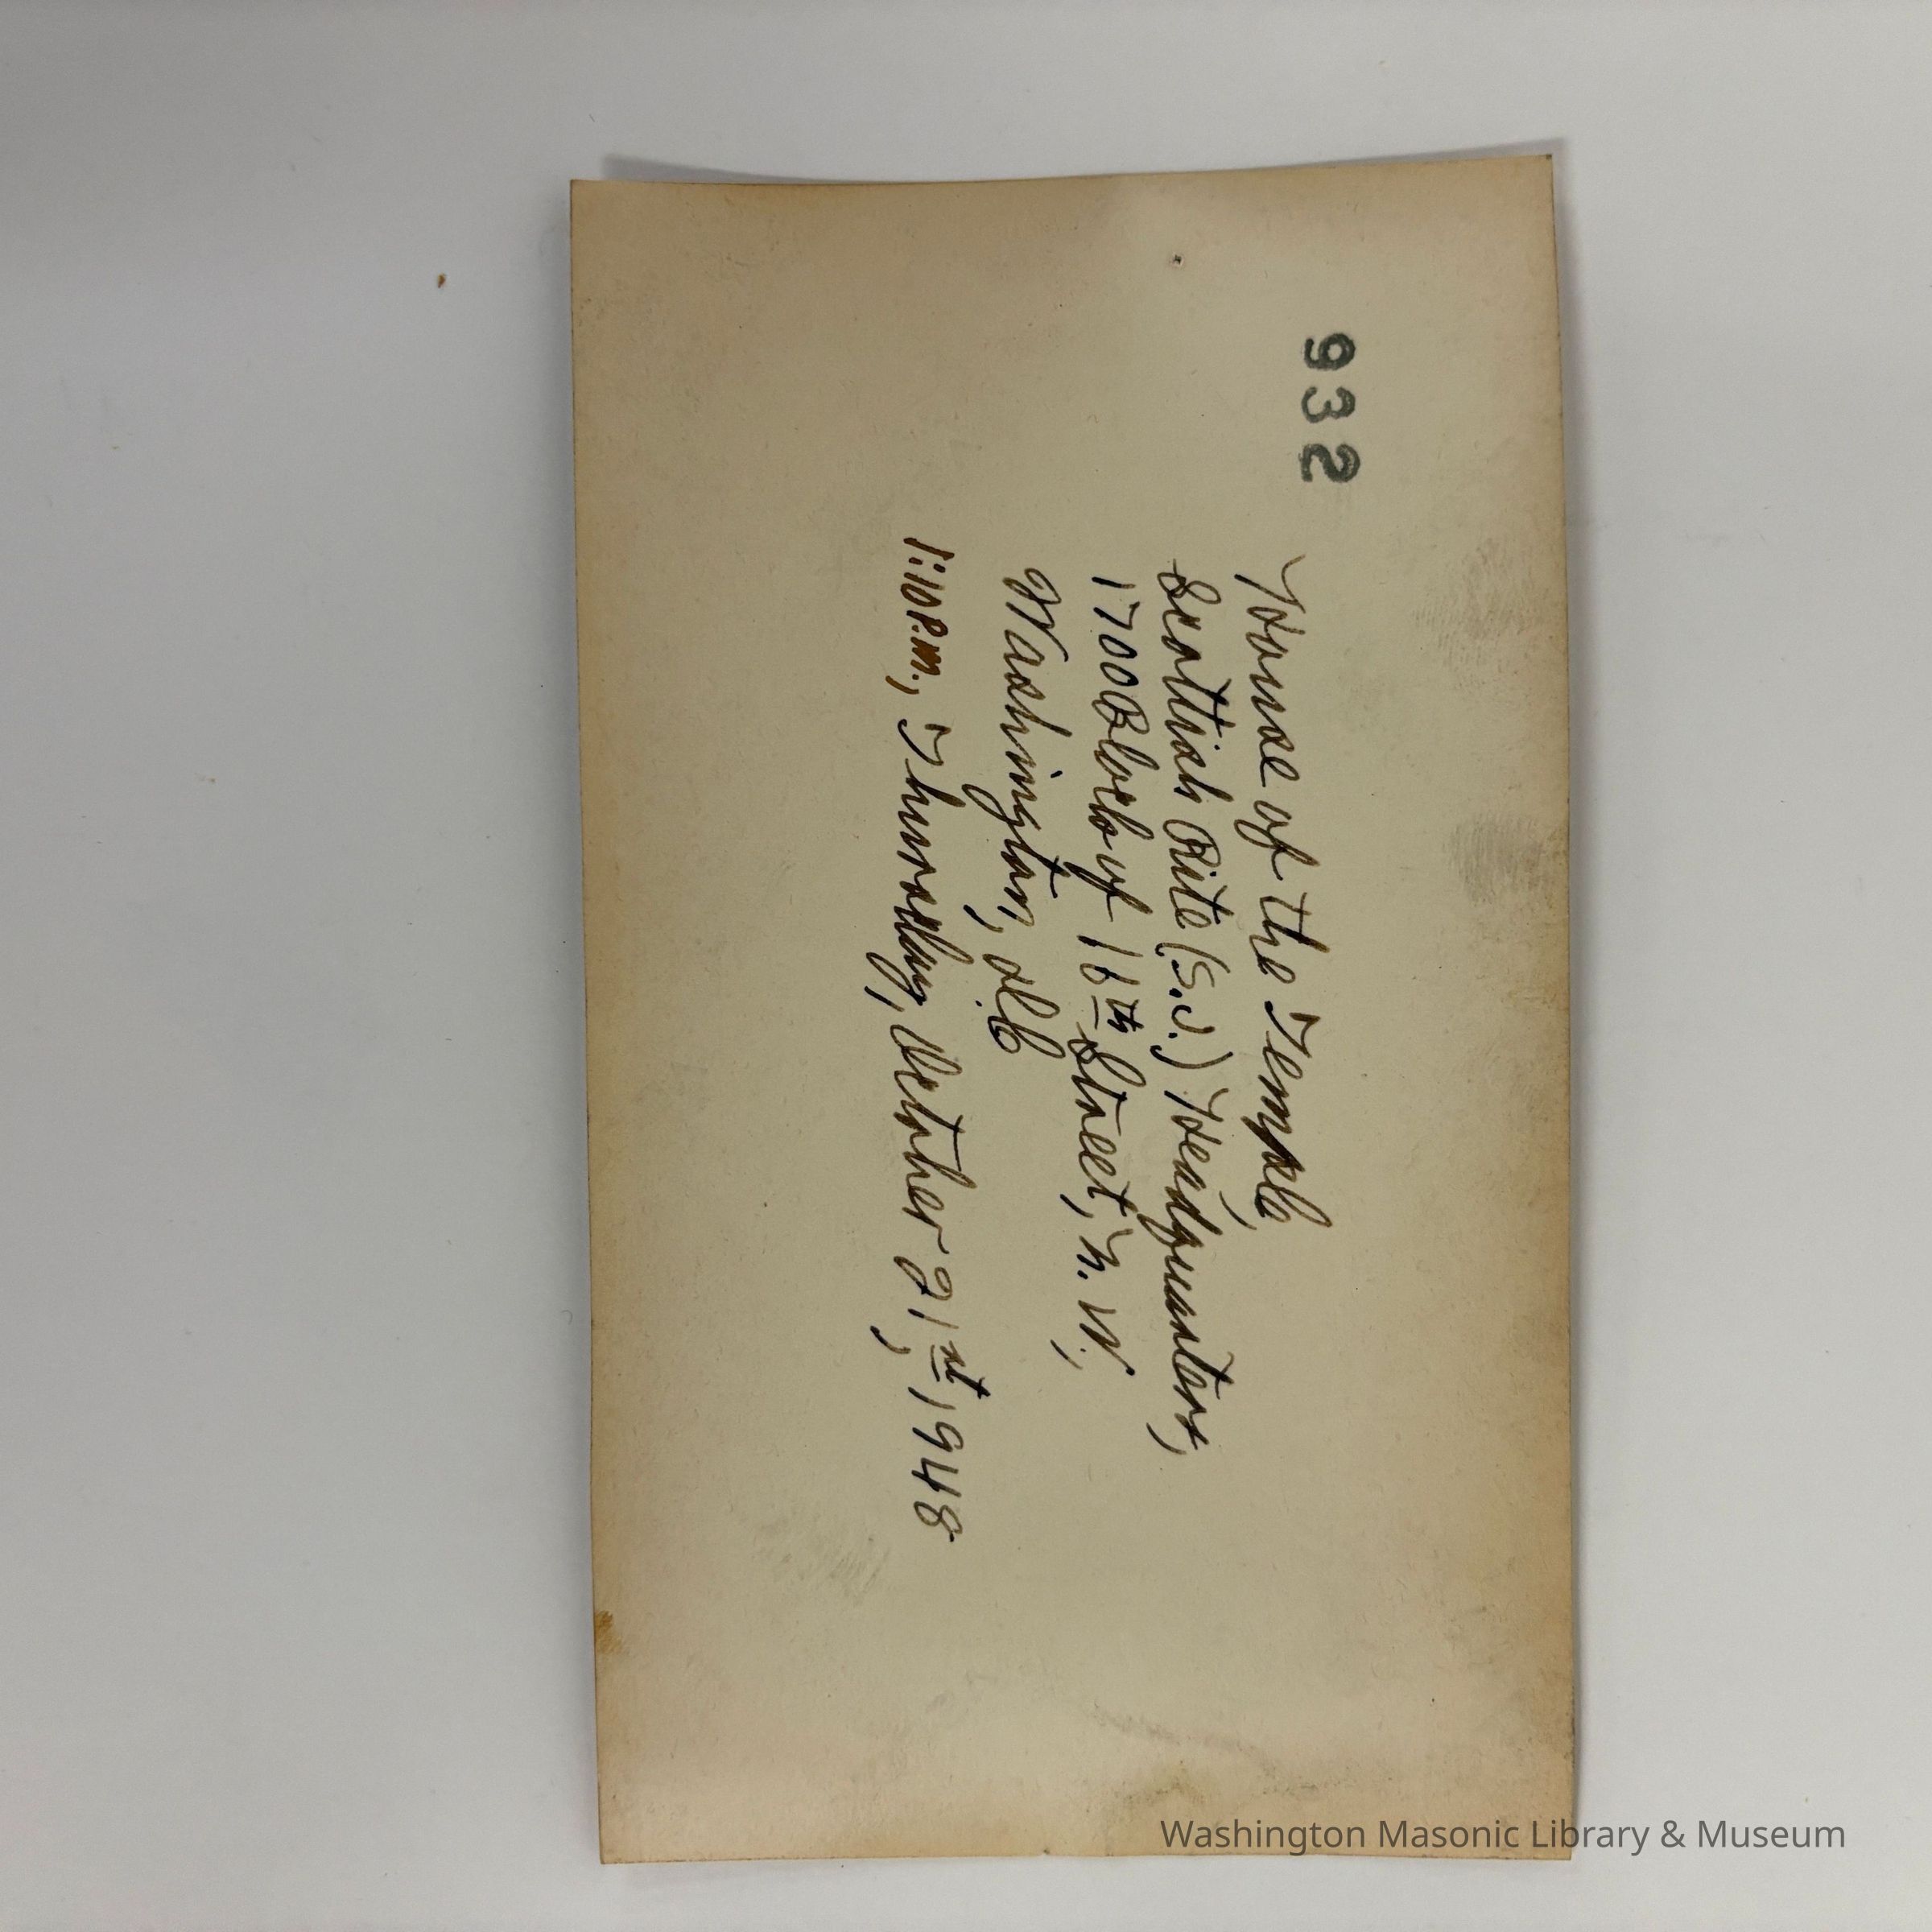 932
House of the Temple,
Scottish Rite (S.J.) Headquarters,
1700 Block of 16th Street, N.W.,
Washington, D.C.
1:10 P.m., Thursday, October 21st, 1948
Washington Masonic Library & Museum